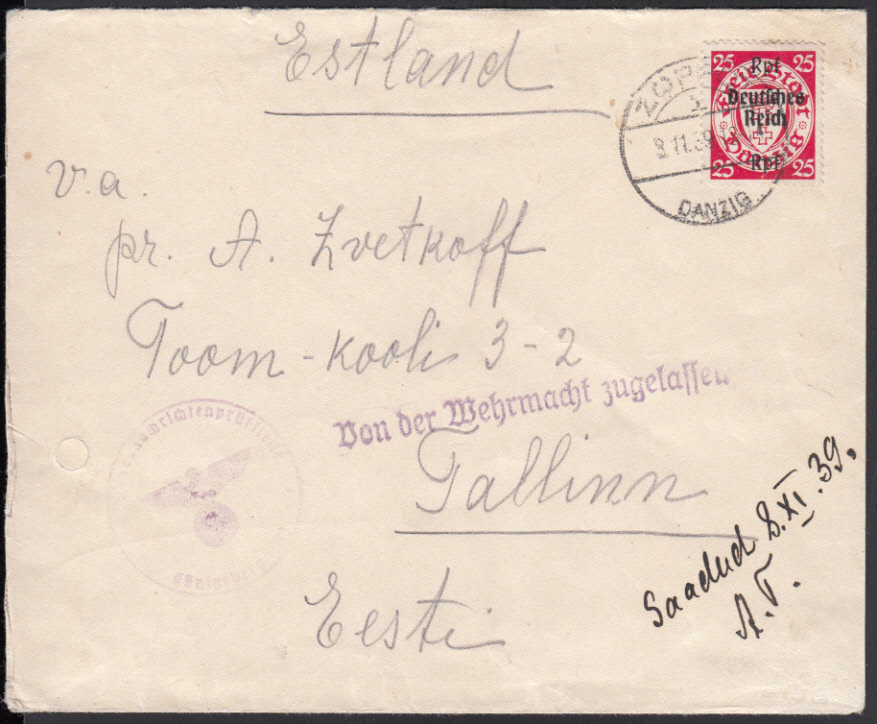 Estland
ZOPPOT
3.11.39
DANZIG
25 Rpf 25
Freie Stadt Danzig
Deutsches
Reich
25 Rpf 25
v. a.
pr. A. Zvetkoff
Toom-kooli 3-2
Von der Wehrmacht zugelassen
Tallinn
Saadud 8.XI.39.
A.T.
Eesti